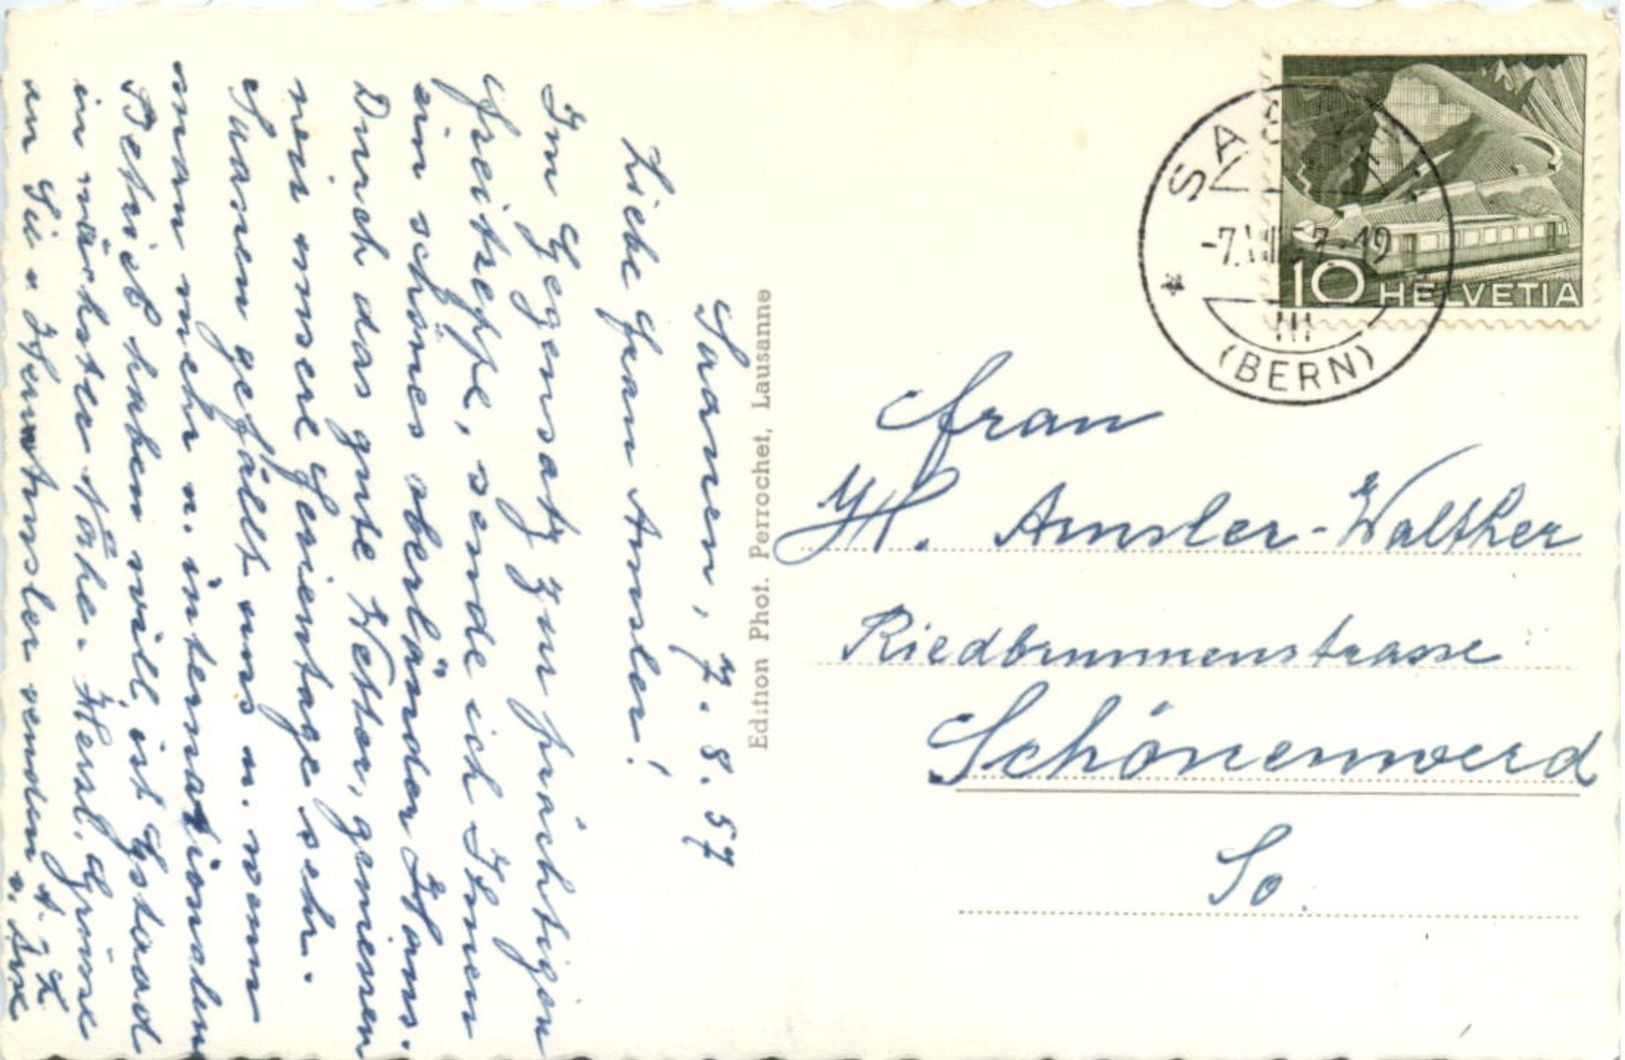 Saanen, 7. 8. 57
Liebe Frau Amsler!
Im Gegensatz zur prächtigen
Freitreppe, sende ich Ihnen
ein schönes oberländer Haus.
Durch das gute Wetter, geniessen
wir unsere Ferientage sehr.
Saanen gefällt uns u. wenn
man mehr n. internationalen
Betrieb haben will, ist Gstaad
in nächster Nähe. Herzl. Grüsse
an Sie u. Hr Amsler senden
Edition Phot. Perrochet, Lausanne
SAANEN
-7.VIII.57.-19
(BERN)
10 HELVETIA
Frau
H. Amsler-Walther
Riedbrunnenstrasse
Schönenwerd
So.